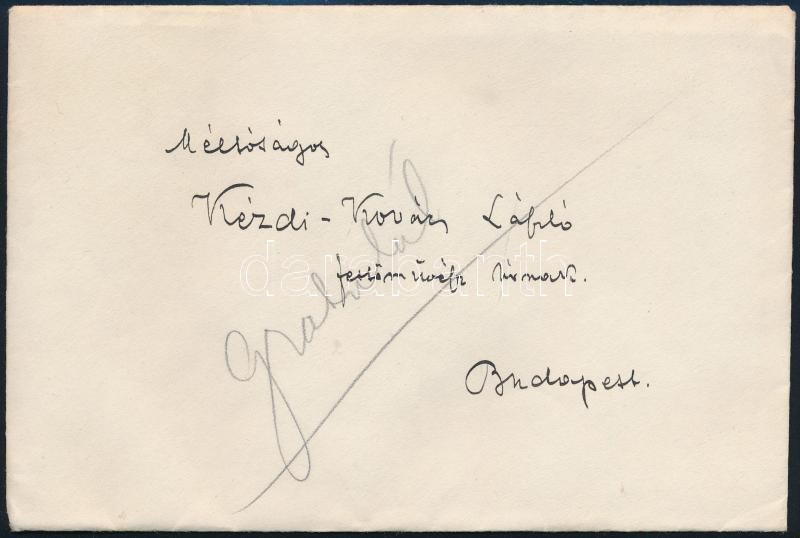 Méltóságos
Kézdi-Kovács László
festőművész úrnak.
Budapest.
darabanth